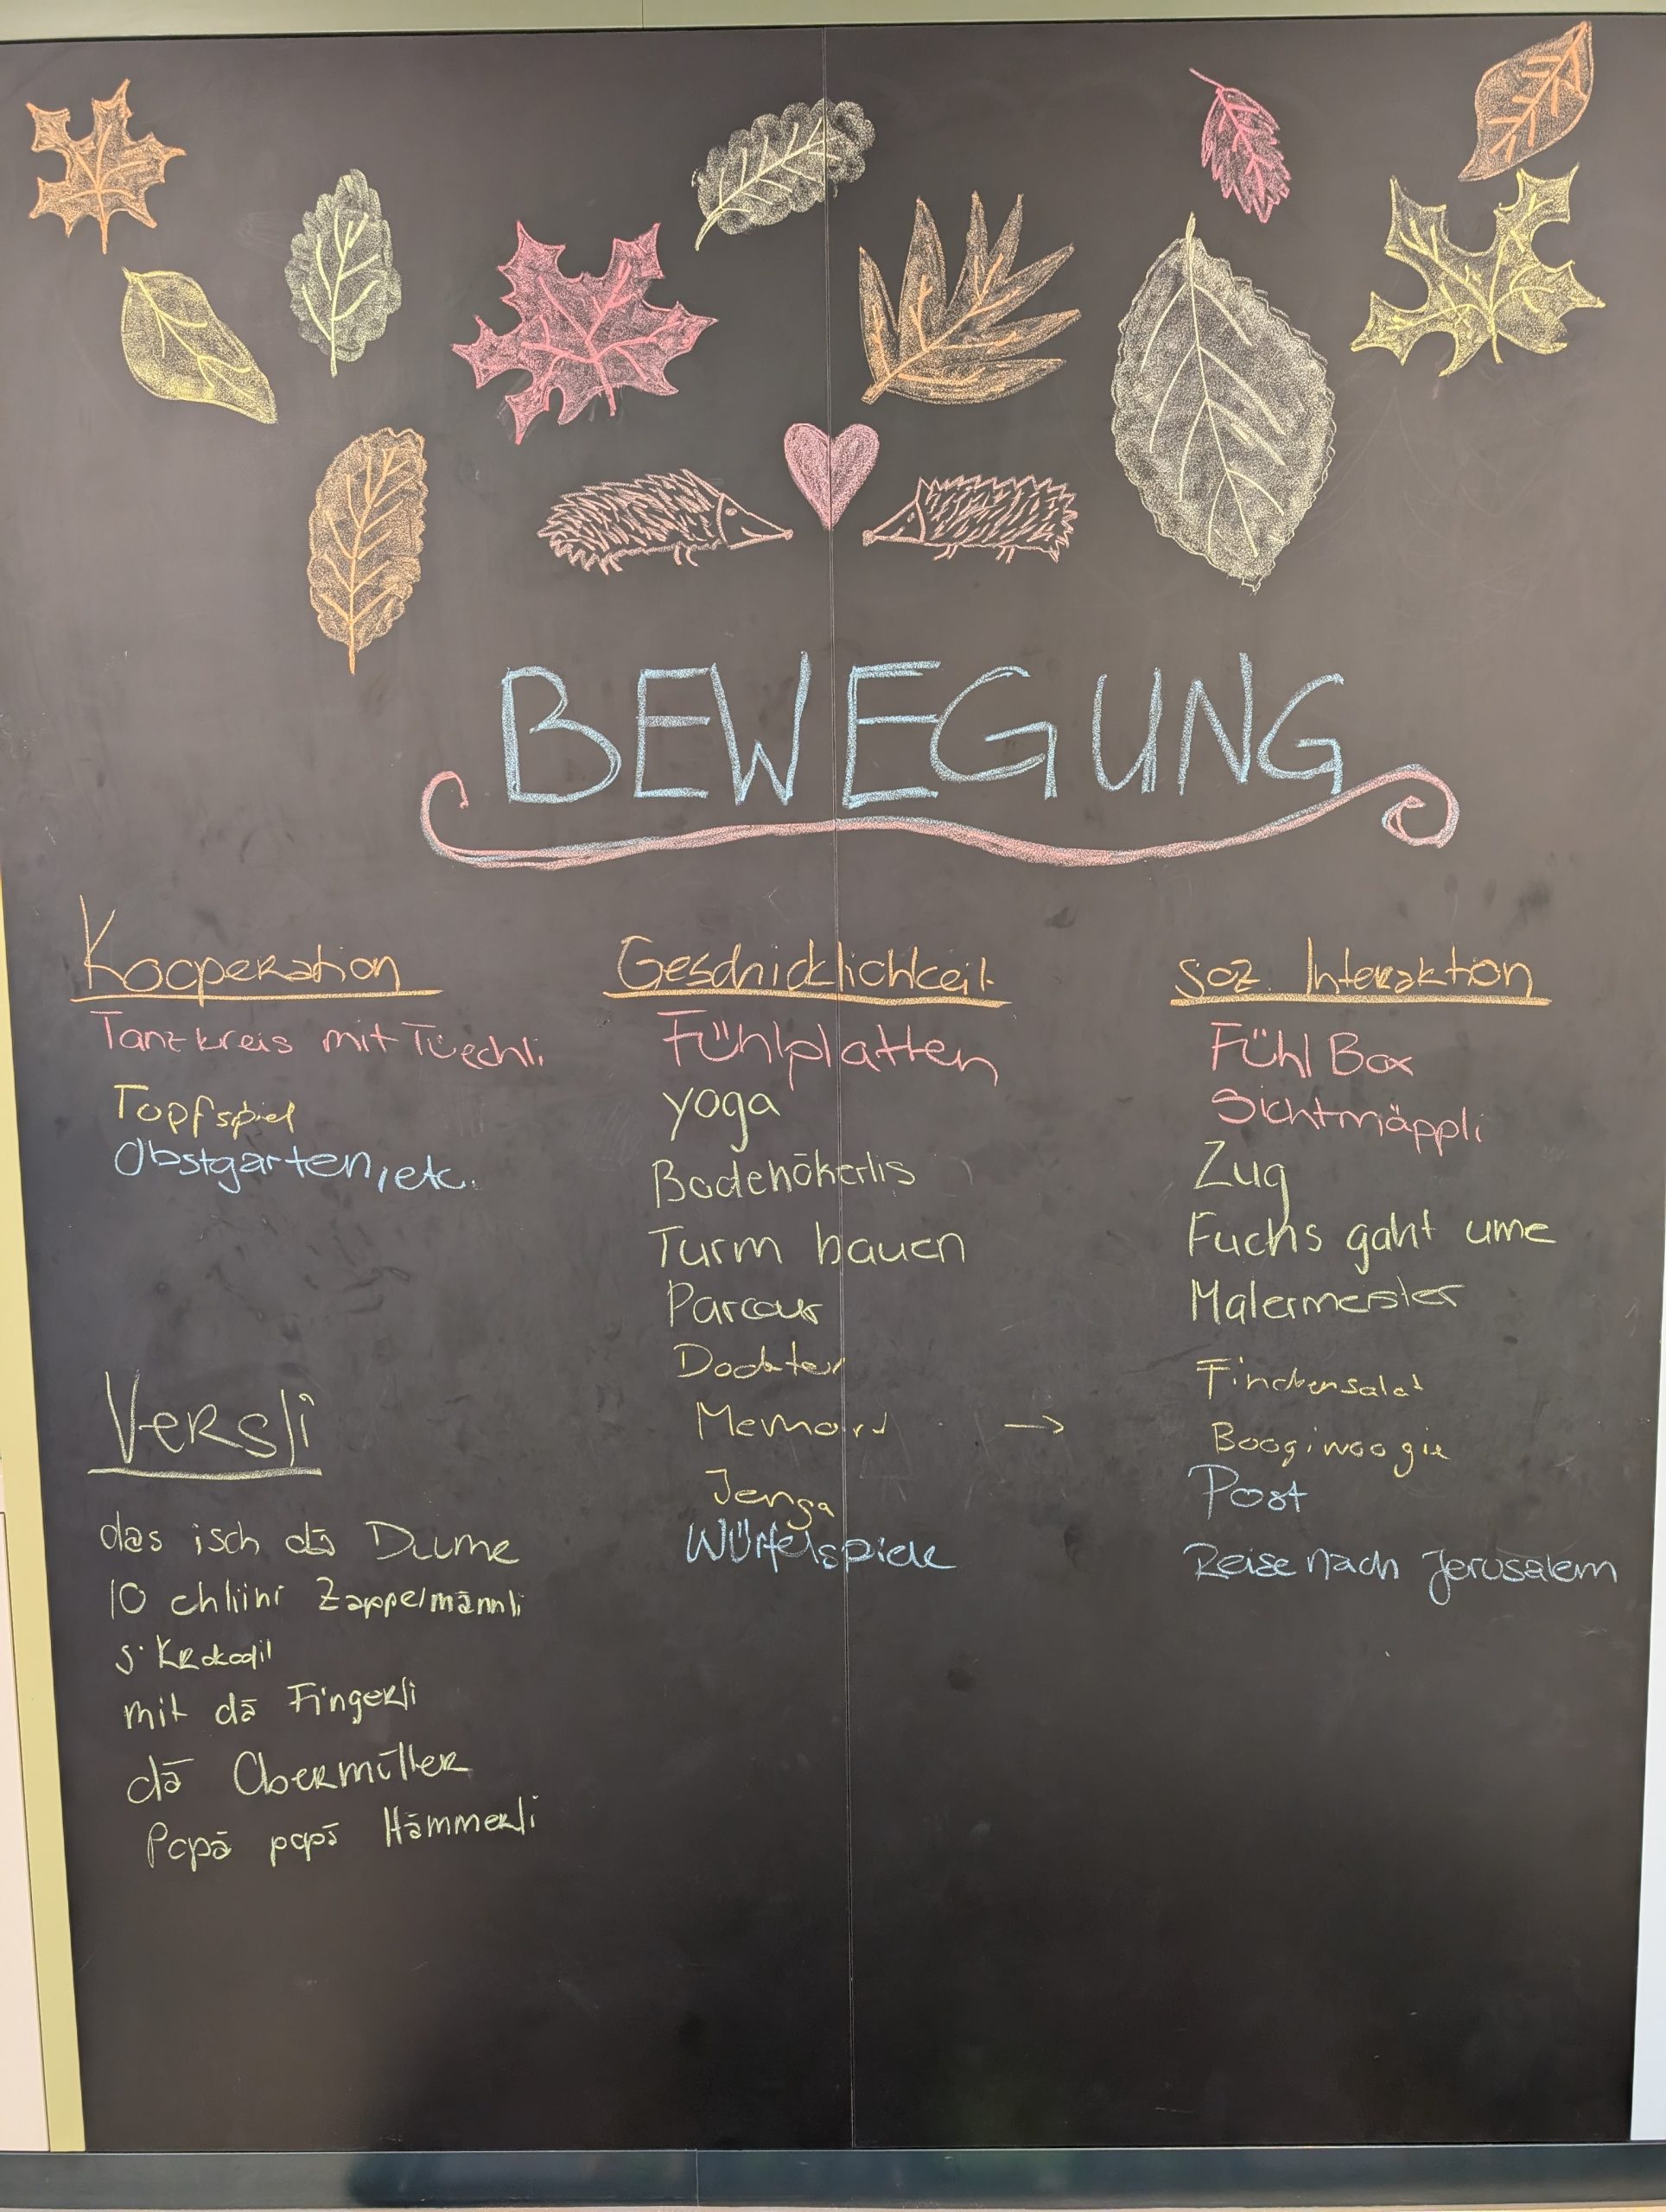 BEWEGUNG
Kooperation
Tanzkreis mit Tüechli
Topfspiel
Obstgarten, etc.
Versli
das isch dä Dume
10 chliini Zappelmännli
s'Krokodil
mit dä Fingerli
dä Obermüller
Papä papä Hämmerli
Geschicklichkeit
Fühlplatten
Yoga
Bodehökerlis
Turm bauen
Parcour
Dockter
→
Jenga
Würfelspiele
soz. Interaktion
Fühl Box
Sichtmäppli
Zug
Fuchs gaht ume
Malermeister
Finckensalat
Boogiwoogie
Post
Reise nach Jerusalem